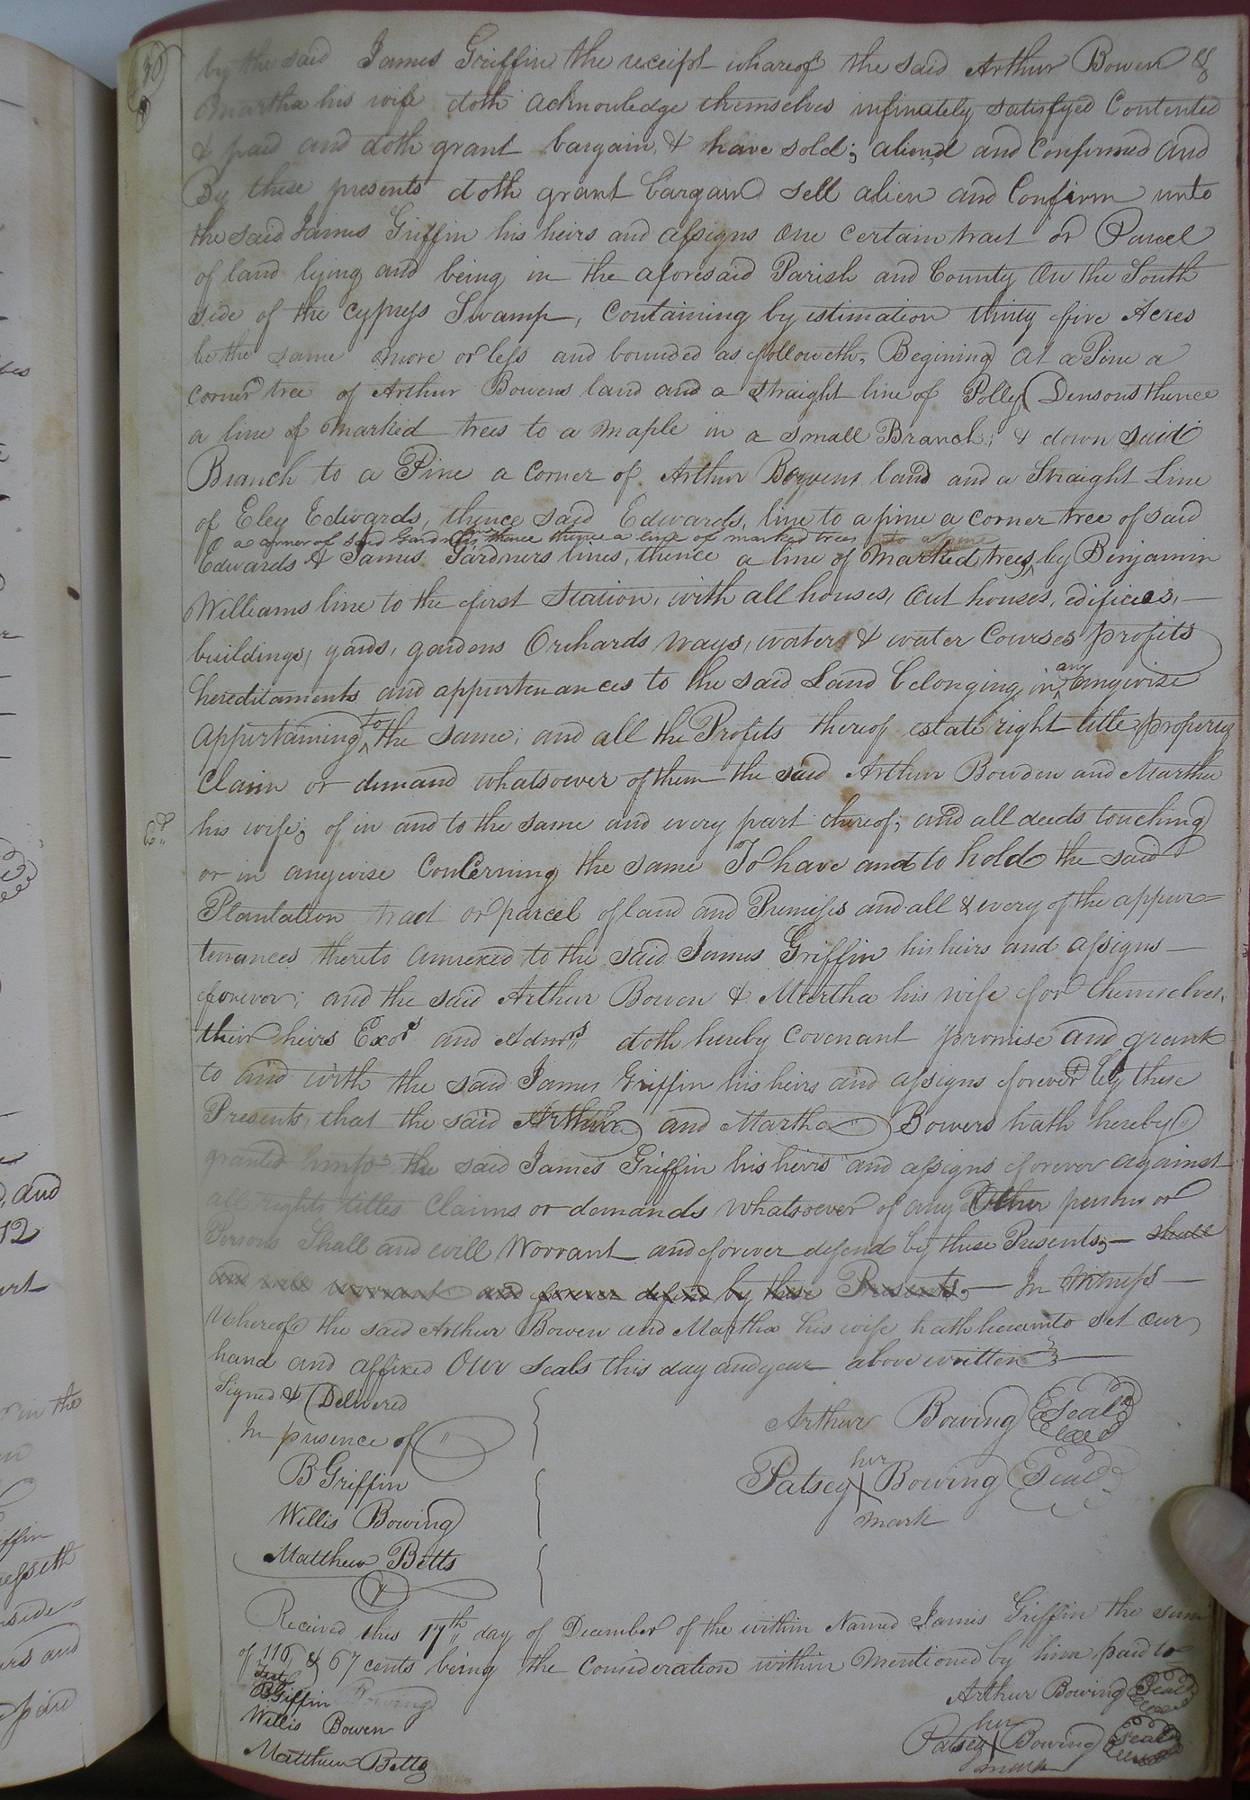 by the said James Griffin the receipt whareof the said Arthur Bowen &
Martha his wife doth acknowledge themselves infinately satisfyed Contented
& paid and doth grant bargain, & have sold; aliend and Confirmed and
By these presents doth grant bargain sell alien and Confirm unto
the said James Griffin his heirs and assigns One certain tract or Parcel
of land lying and being in the aforesaid Parish and County On the South
side of the cypress Swamp, Containing by estimation thirty five Acres
be the same more or less and bounded as followeth, Begining at a Pine a
corner tree of Arthur Bowens land and a straight line of Polley Densons thence
a line of marked trees to a maple in a small Branch; & down said
Branch to a Pine a corner of Arthur Bowens land and a Straight Line
of Eley Edwards, thence said Edwards, line to a pine a corner tree of said
a corner of said Gardners thence a line of marked trees to a pine
Edwards & James Gardners lines, thence a line of Marked trees, by Benjamin
Williams line to the first Station, with all houses, out houses, edificies,
buildings, yards, gardens Orchards ways, waters & water Courses profits
any
hereditaments and appurtenances to the said Land belonging, in anywise
to
Appertaining the same; and all the Profits thereof estate right title property
Claim or demand whatsoever of them the said Arthur Bowden and Martha
his wife, of in and to the same and every part thereof; and all deeds touching
or in anywise Concerning the same To have and to hold the said
Plantation tract or parcel of land and Premises and all & every of the appur=
tenances thereto annexed to the said James Griffin his heirs and assigns
forever; and the said Arthur Bowen & Martha his wife for themselves,
their heirs Exors and Admrs doth hereby Covenant promise and grant
to and with the said James Griffin his heirs and assigns forever by these
Presents, that the said Arthur and Martha Bowers hath hereby
granted the said James Griffin his heirs and assigns forever against
all rights titles Claims or demands whatsoever of any Other person or
Persons Shall and will Worrant and forever defend by these Presents, shall
and will warrant and forever defend by these Presents, In Witness
Whereof the said Arthur Bowen and Martha his wife hath hereunto set our
hand and affixed Our seals this day and year above written
Signed & Delivered
In presence of
B Griffin
Willis Bowing
Matthew Betts
Arthur Bowing Seal
her
Patsey X Bowing Seal
mark
Received this 17th day of December of the within Named James Griffin the sum
of 116, & 67 cents being the Consideration within mentioned by him paid to
Test
B Griffin
Willis Bowen
Matthew Betts
Arthur Bowing Seal
her
Patsey X Bowing Seal
mark